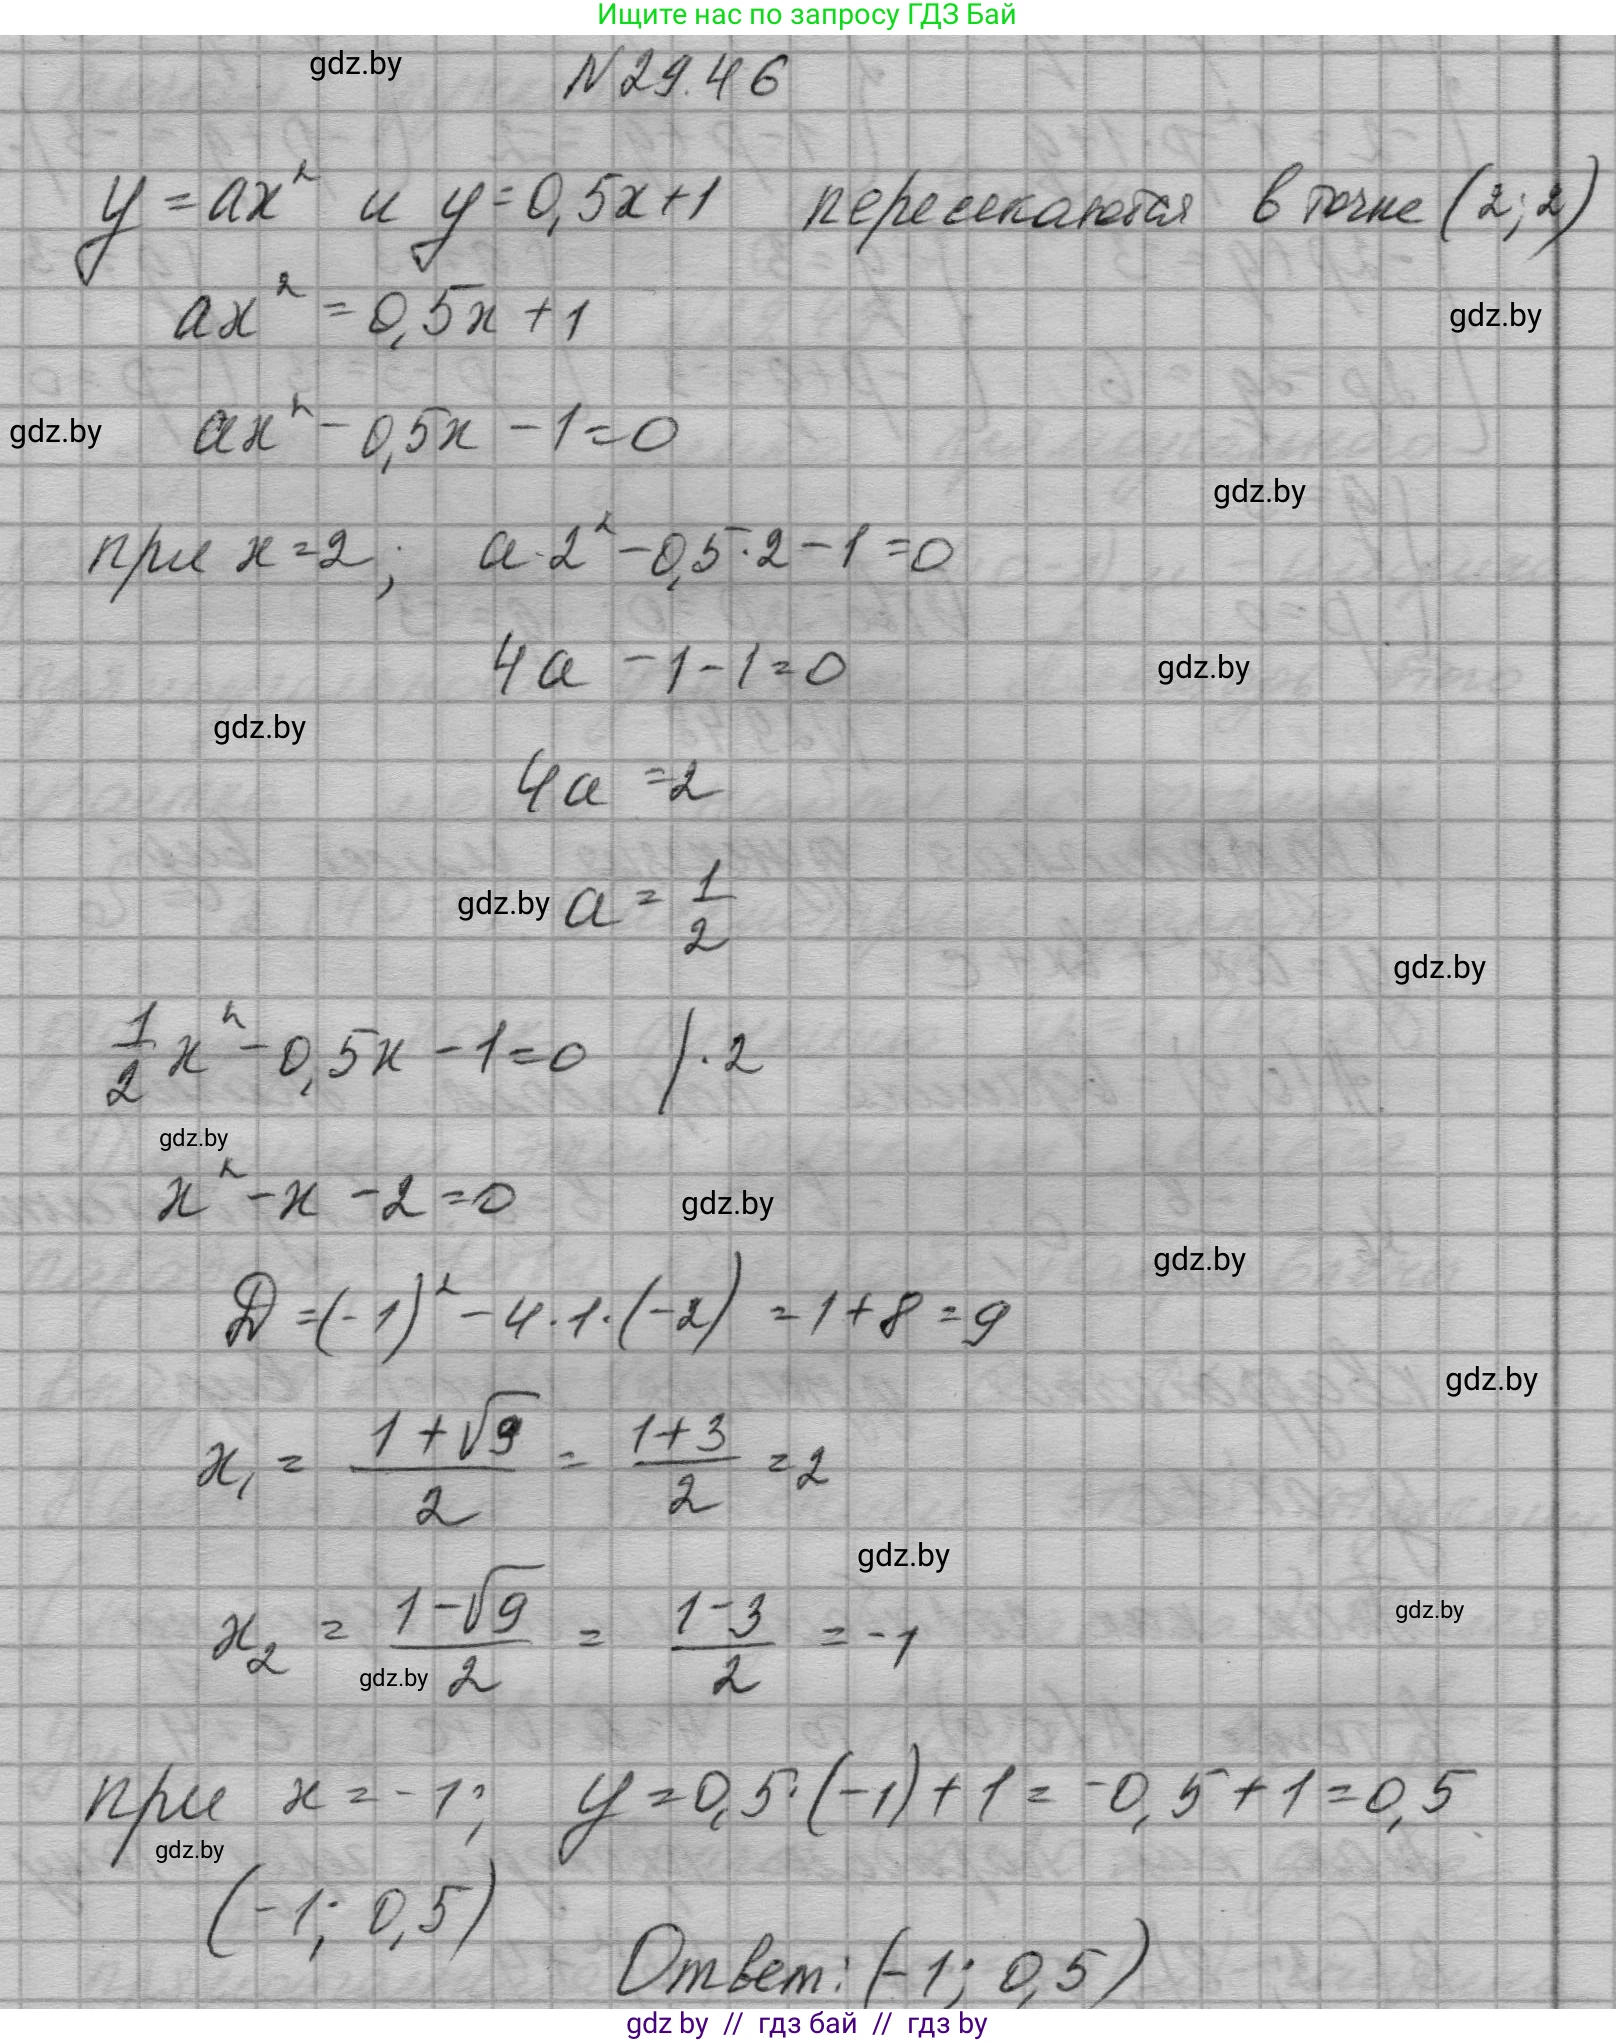 Ищите нас по запросу ГДЗ Бай
gdz.by
N 29.46
y = ax² и y = 0,5x+1 пересекаются в точке (2; 2)
ax² = 0,5x + 1
gdz.by
gdz.by
ax² - 0,5x - 1 = 0
gdz.by
при x = 2; a · 2² - 0,5 · 2 - 1 = 0
4a - 1 - 1 = 0
gdz.by
gdz.by
4a = 2
gdz.by
a = 1/2
gdz.by
1/2 x² - 0,5x - 1 = 0 | · 2
gdz.by
x² - x - 2 = 0
gdz.by
gdz.by
D = (-1)² - 4 · 1 · (-2) = 1 + 8 = 9
gdz.by
x₁ = (1 + √9)/2 = (1+3)/2 = 2
gdz.by
gdz.by
x₂ = (1 - √9)/2 = (1-3)/2 = -1
gdz.by
при x = -1; y = 0,5 · (-1) + 1 = -0,5 + 1 = 0,5
gdz.by
(-1; 0,5)
Ответ: (-1; 0,5)
gdz by // гдз бай // гдз by